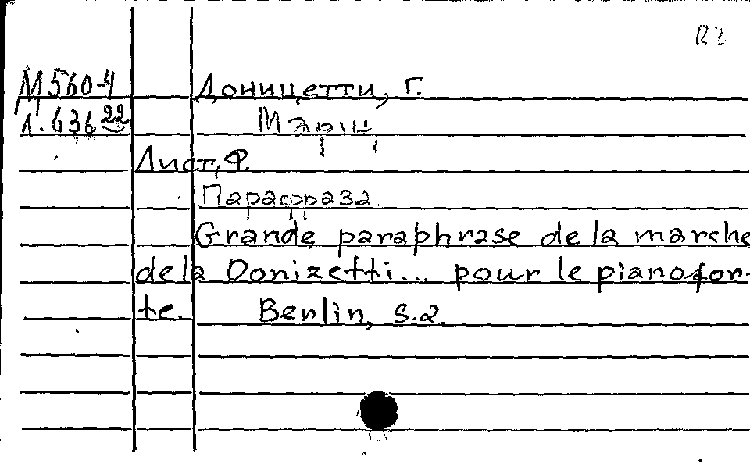 R2
М560-4 Доницетти, Г.
Л.636 22 Марш,
Лист, Ф.
Парафраза.
Grande paraphrase de la marche
de la Donizetti... pour le pianofor-
te. Berlin, s.a.